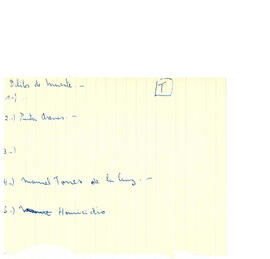 Delitos de muerte. - T
1-)
2-) Punta Arenas. -
3-)
4-) Manuel Torres de la Cruz. -
5-) Homicidio